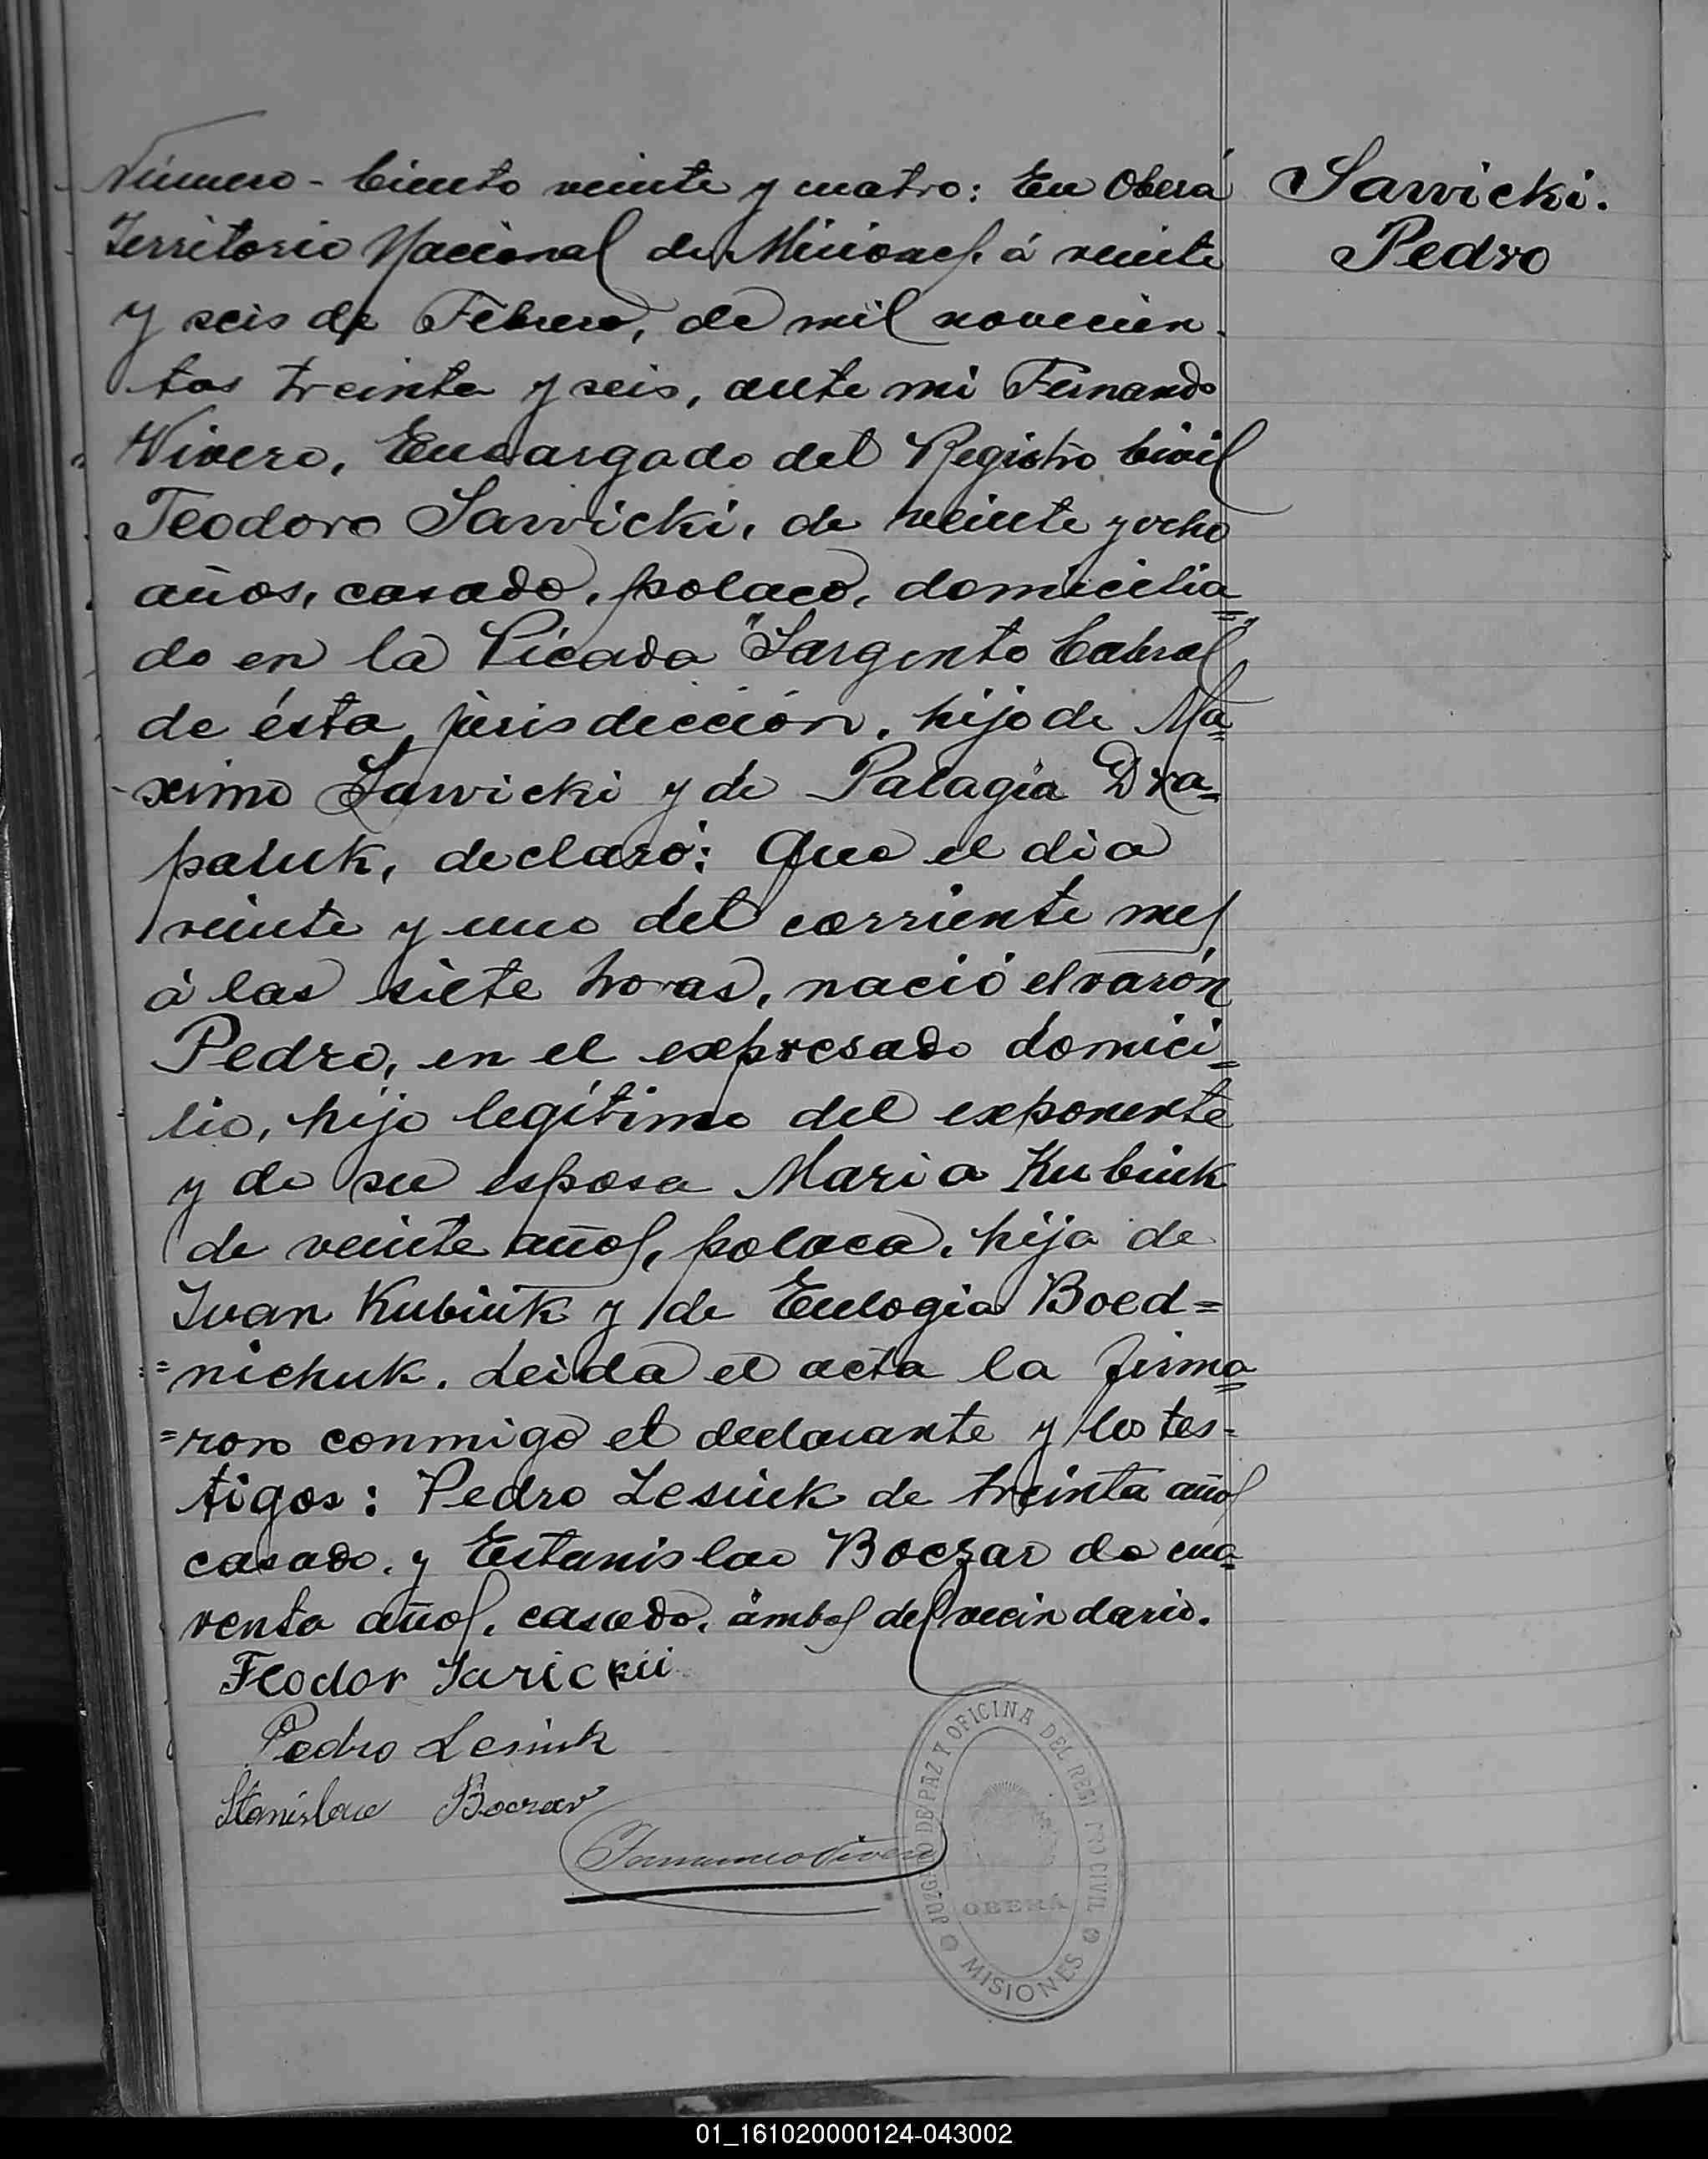 Número - Ciento veinte y cuatro: En Oberá
Territorio Nacional de Misiones. á veinte
y seis de Febrero, de mil novecien-
tos treinta y seis, ante mi Fernando
Vivero, Encargado del Registro Civil
Teodoro Sawicki, de veinte y ocho
años, casado, polaco, domicilia=
do en la Picada "Sargento Cabral"
de ésta jurisdicción, hijo de Ma=
ximo Sawicki y de Palagia Dra=
paluk, declaró: Que el dia
veinte y uno del corriente mes
á las siete horas, nació el varón
Pedro, en el expresado domici=
lio, hijo legítimo del exponente
y de su esposa Maria Kubiuk
de veinte años, polaca, hija de
Ivan Kubiuk y de Eulogia Boed=
=nichuk. Leida el acta la firma=
=ron conmigo el declarante y los tes=
tigos: Pedro Lesiuk de treinta años
casado, y Estanislao Boczar de cua=
renta años, casado, ámbos del vecindario.
Feodor Sarickii
Pedro Lesiuk
Stanislaw Boczar
Fernando Vivero
JUZGADO DE PAZ Y OFICINA DEL REGISTRO CIVIL
OBERÁ
MISIONES
Sawicki.
Pedro
01_161020000124-043002